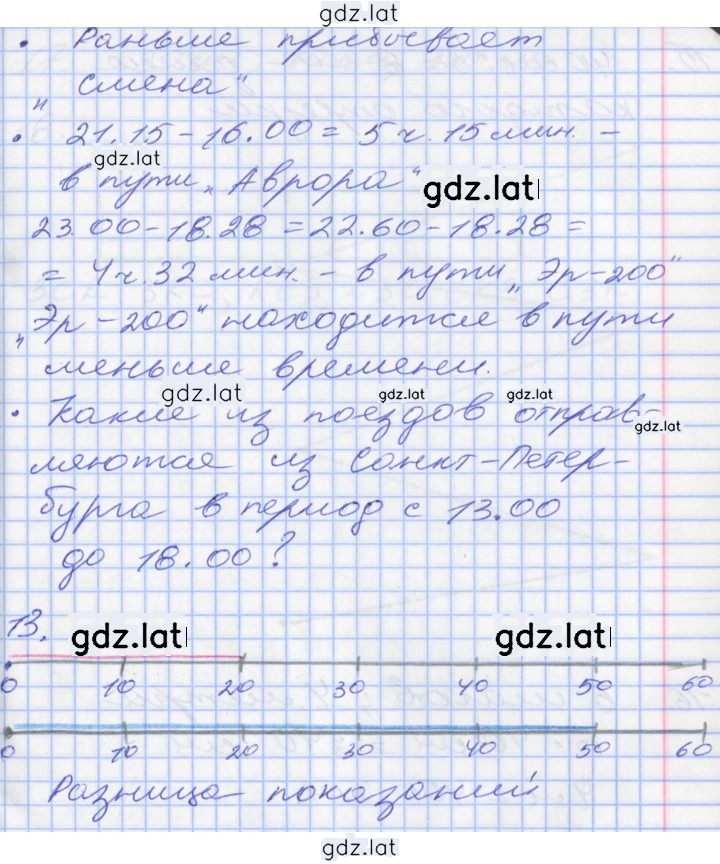 gdz.lat
• Раньше прибывает
„Смена“
• 21.15 – 16.00 = 5 ч. 15 мин. –
gdz.lat
в пути „Аврора“ gdz.lat
23.00 – 18.28 = 22.60 – 18.28 =
= 4 ч. 32 мин. – в пути „Эр-200“
„Эр-200“ находится в пути
меньше времени.
gdz.lat gdz.lat gdz.lat
• Какие из поездов отправ-
gdz.lat
ляются из Санкт-Петер-
бурга в период с 13.00
до 18.00?
13. gdz.lat gdz.lat
0 10 20 30 40 50 60
0 10 20 30 40 50 60
Разница показаний
gdz.lat